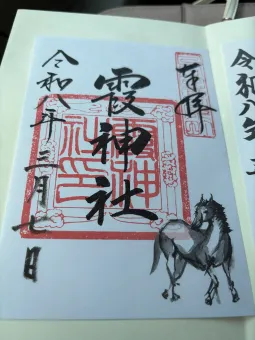 奉拝
霞神社
令和八年三月七日
令和八年